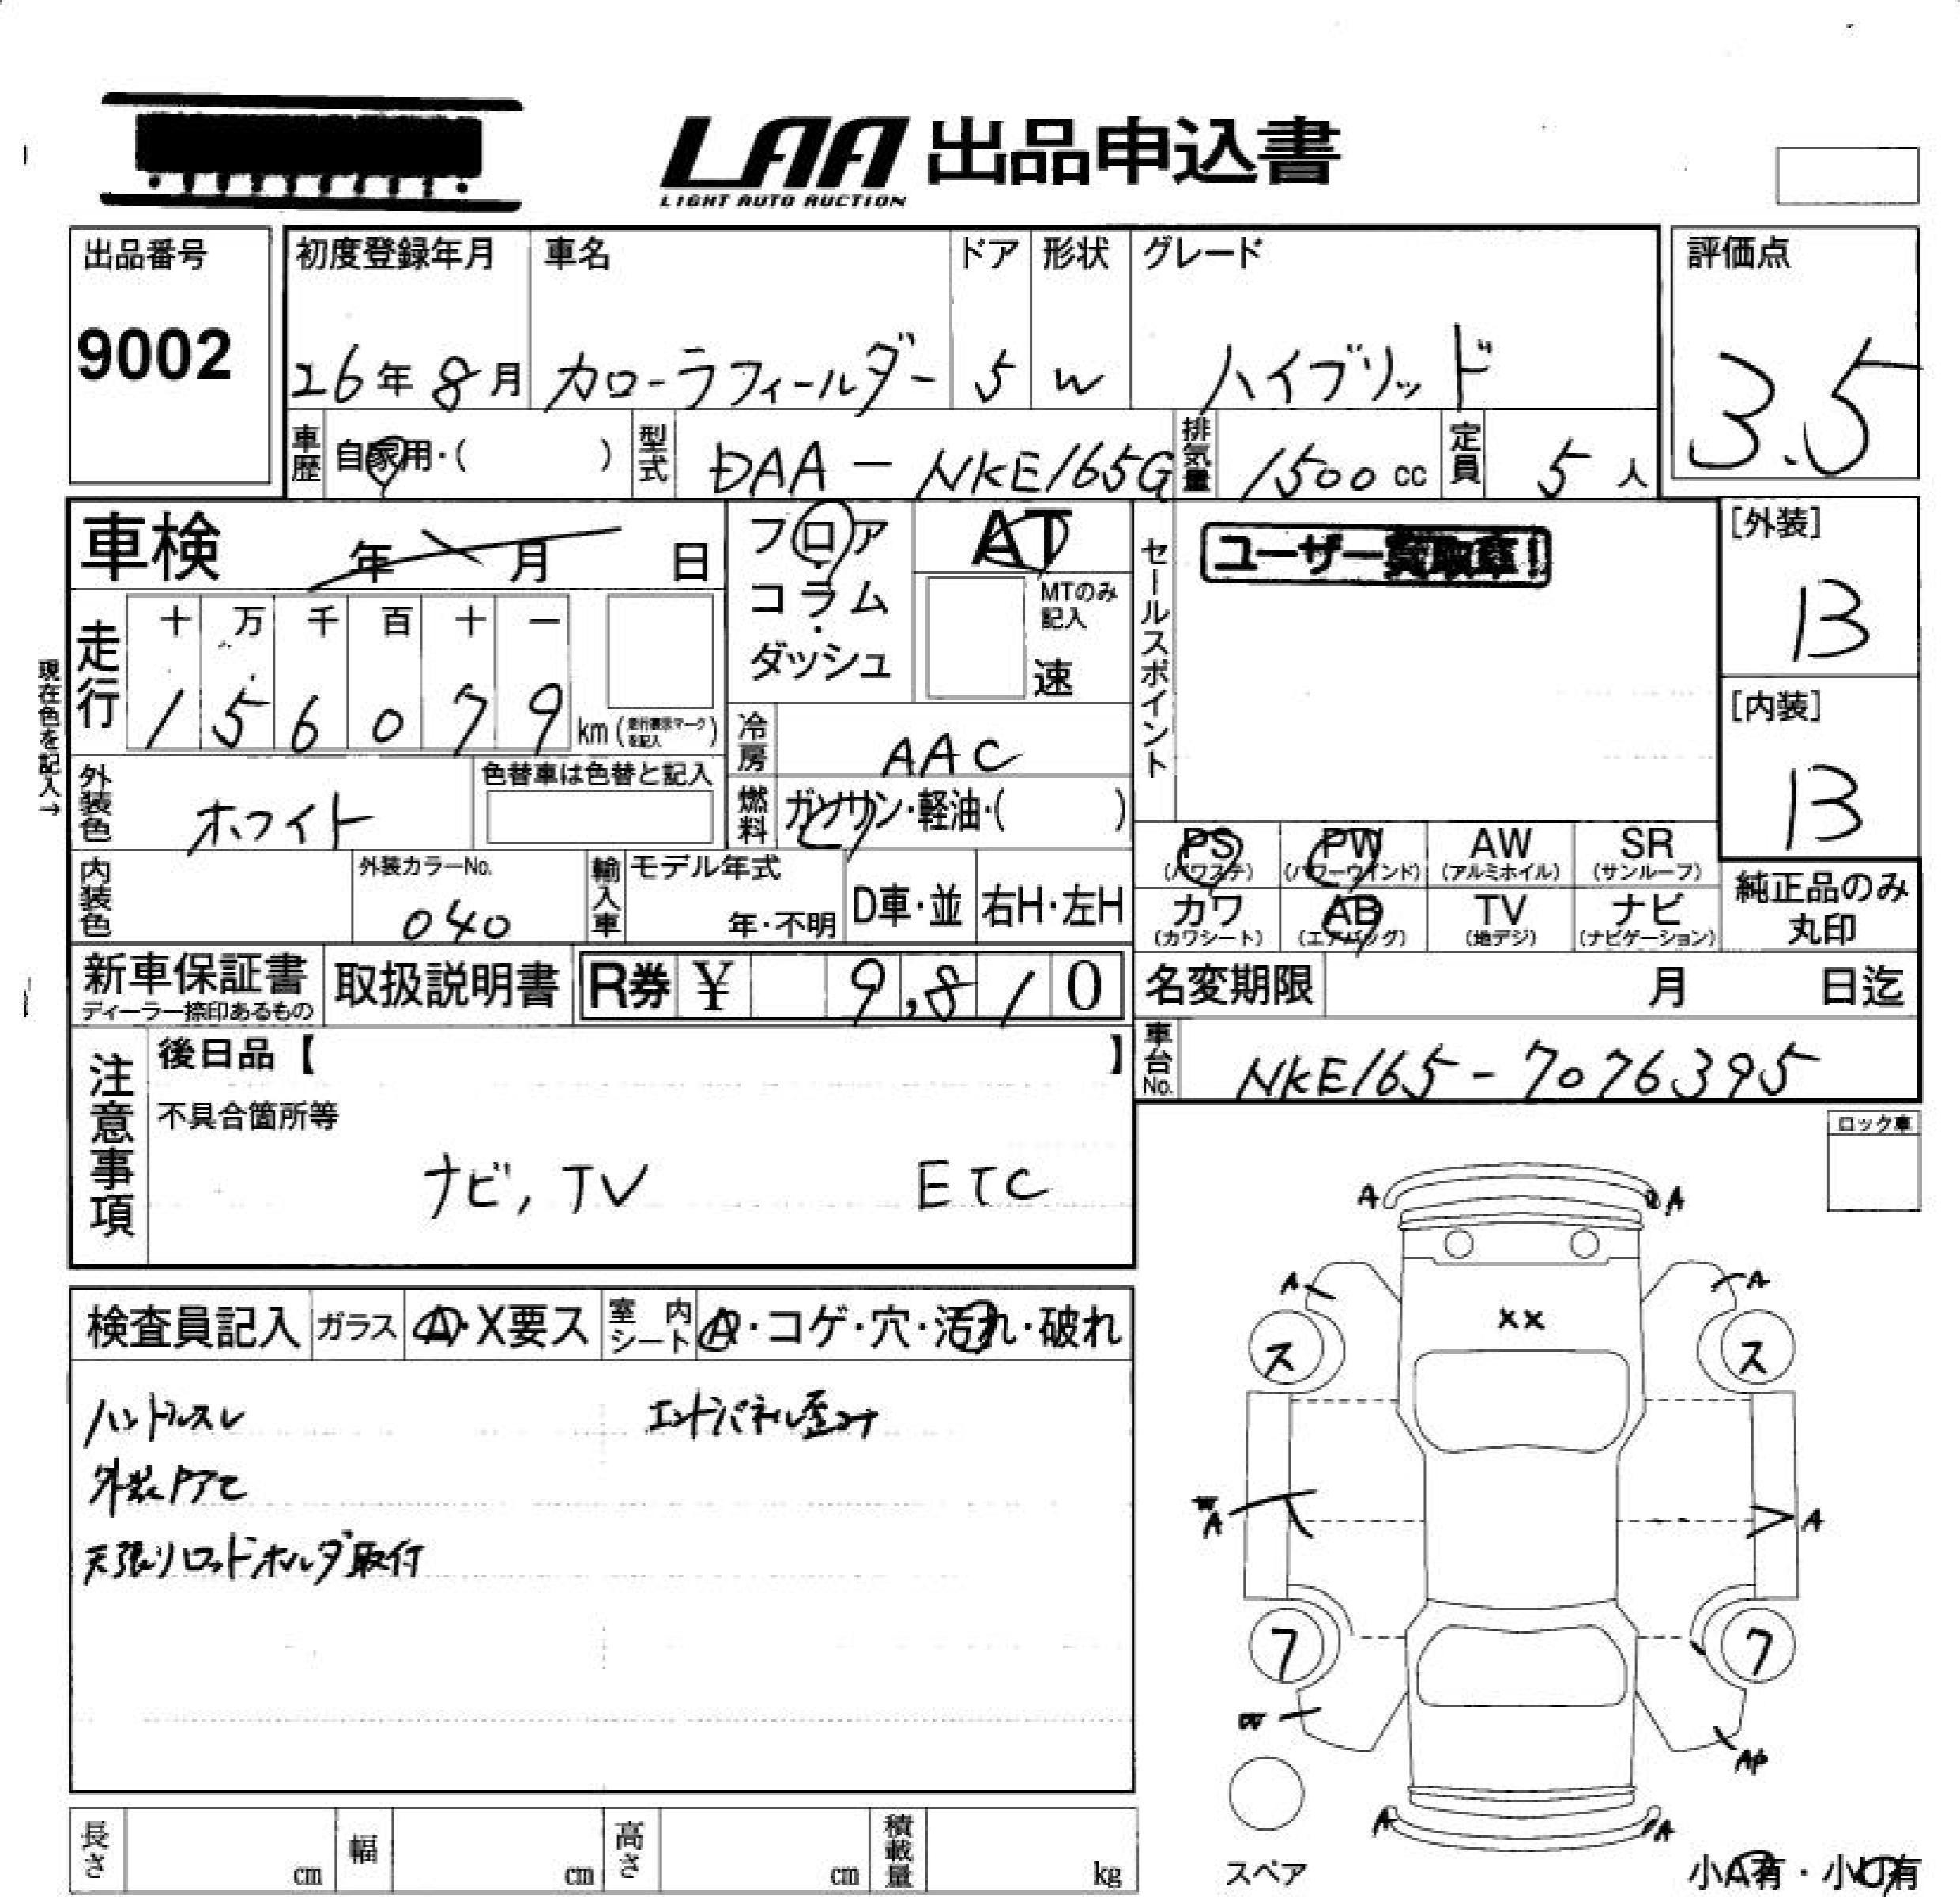 LAA 出品申込書
LIGHT AUTO AUCTION
出品番号
9002
初度登録年月
26年8月
車名
カローラフィールダー
ドア
5
形状
W
グレード
ハイブリッド
評価点
3.5
車歴
自家用・( )
型式
DAA-NKE165G
排気量
1500cc
定員
5人
車検 年 月 日
走行
十 万 千 百 十 一
1 5 6 0 7 9 km (走行表示マークを記入)
現在色を記入→
フロア
・
コラム
・
ダッシュ
AT
MTのみ
記入
速
冷房
AAC
燃料
ガソリン・軽油・( )
セールスポイント
ユーザー買取車!
[外装]
B
[内装]
B
外装色
ホワイト
色替車は色替と記入
内装色
外装カラーNo.
040
輸入車
モデル年式
年・不明
D車・並
右H・左H
PS
(パワステ)
PW
(パワーウインド)
AW
(アルミホイル)
SR
(サンルーフ)
カワ
(カワシート)
AB
(エアバッグ)
TV
(地デジ)
ナビ
(ナビゲーション)
純正品のみ
丸印
新車保証書
ディーラー捺印あるもの
取扱説明書
R券 ¥ 9,810
名変期限 月 日迄
車台No.
NKE165-7076395
注意事項
後日品【 】
不具合箇所等
ナビ, TV ETC
ロック車
検査員記入
ガラス
A・X要ス
室内シート
A・コゲ・穴・汚れ・破れ
ハンドルスレ エンドパネル歪コナ
外装ドアモ
天張りロッドホルダ取付
A A
A A
XX
ス ス
W
A A
フ フ
W
AP
A A
スペア
小A有・小U有
長さ cm
幅 cm
高さ cm
積載量 kg